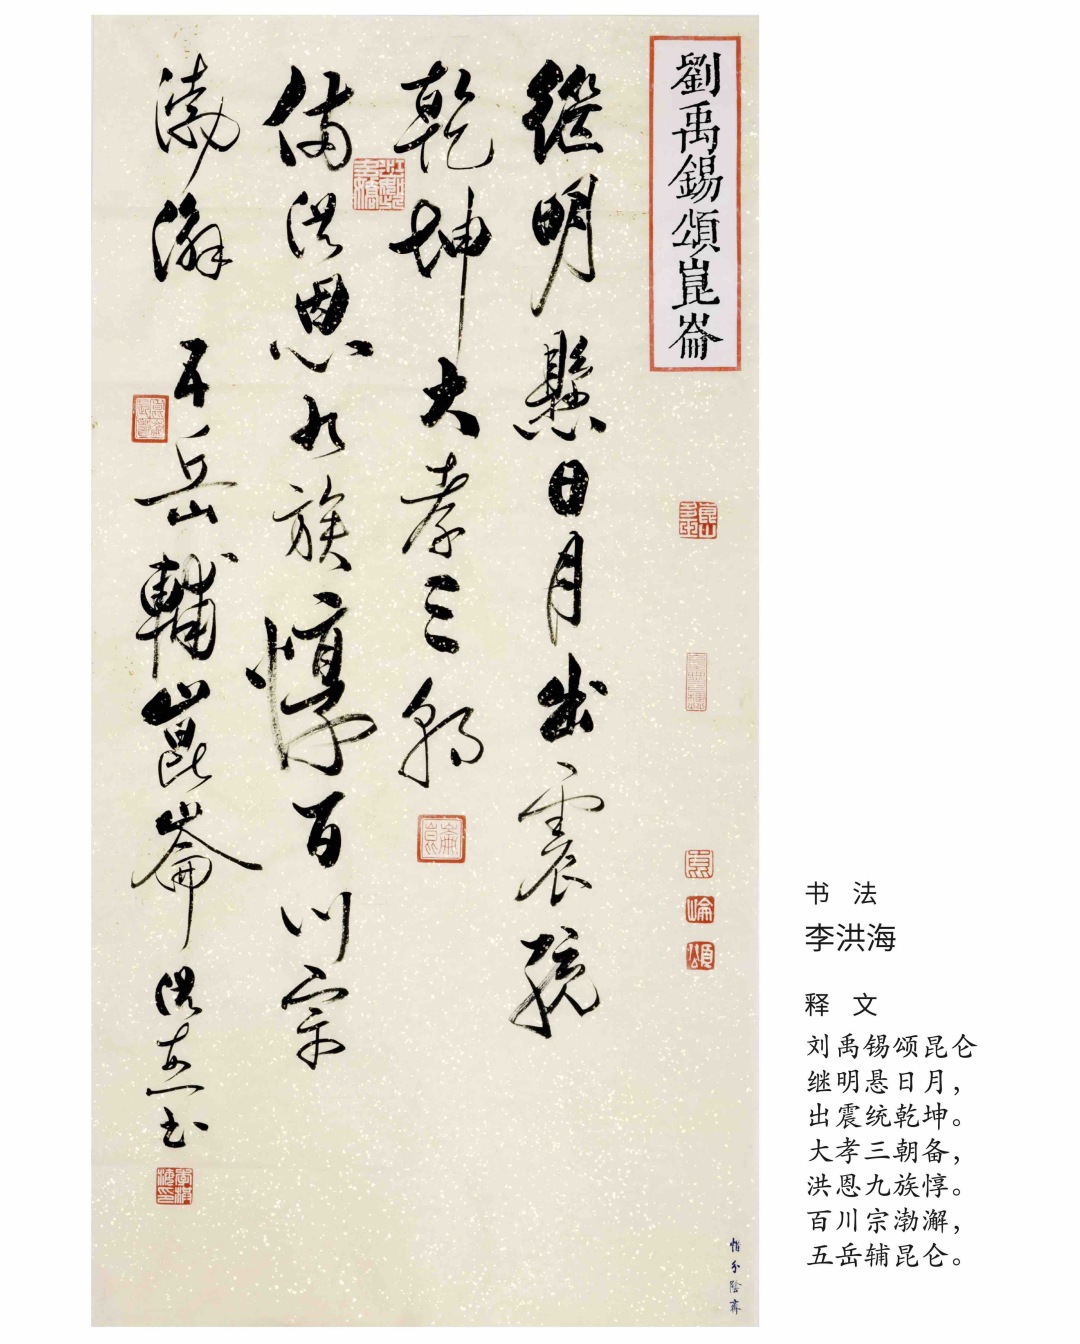 劉禹錫頌崑崙
継明懸日月出震統
乾坤大孝三朝
備洪恩九族惇百川宗
渤澥五岳輔崑崙 洪海书
惜分陰齋
书 法
李洪海
释 文
刘禹锡颂昆仑
继明悬日月，
出震统乾坤。
大孝三朝备，
洪恩九族惇。
百川宗渤澥，
五岳辅昆仑。